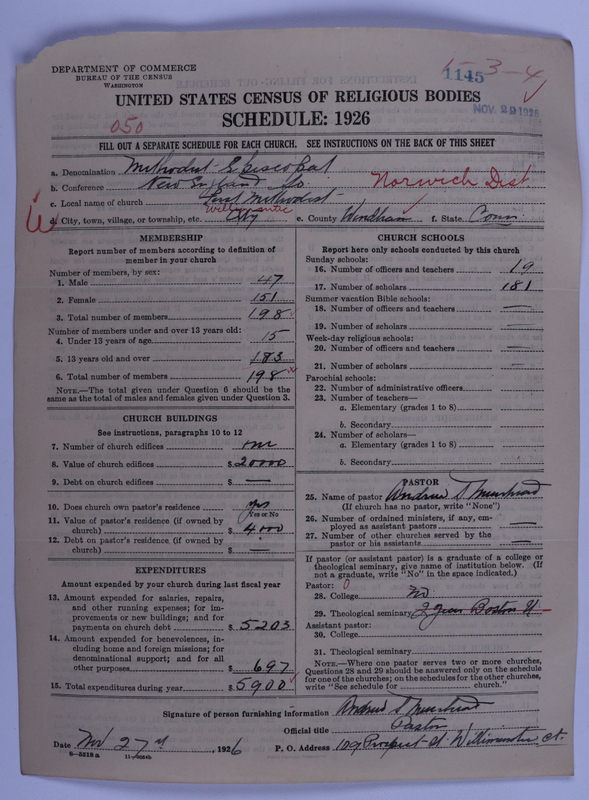 DEPARTMENT OF COMMERCE
BUREAU OF THE CENSUS
WASHINGTON
1145
3-4
NOV. 29 1926
UNITED STATES CENSUS OF RELIGIOUS BODIES
SCHEDULE: 1926
050
FILL OUT A SEPARATE SCHEDULE FOR EACH CHURCH. SEE INSTRUCTIONS ON THE BACK OF THIS SHEET
a. Denomination Methodist Episcopal
b. Conference New England So.
Norwich Dist.
c. Local name of church First Methodist
Willimantic
d. City, town, village, or township, etc. City e. County Windham f. State Conn
MEMBERSHIP
Report number of members according to definition of
member in your church
Number of members, by sex:
1. Male 47
2. Female 151
3. Total number of members 198
Number of members under and over 13 years old:
4. Under 13 years of age 15
5. 13 years old and over 183
6. Total number of members 198
NOTE.—The total given under Question 6 should be the
same as the total of males and females given under Question 3.
CHURCH BUILDINGS
See instructions, paragraphs 10 to 12
7. Number of church edifices one
8. Value of church edifices $ 20000
9. Debt on church edifices $ —
10. Does church own pastor's residence yes
Yes or No
11. Value of pastor's residence (if owned by
church) $ 4000
12. Debt on pastor's residence (if owned by
church) $ —
EXPENDITURES
Amount expended by your church during last fiscal year
13. Amount expended for salaries, repairs,
and other running expenses; for im-
provements or new buildings; and for
payments on church debt $ 5203
14. Amount expended for benevolences, in-
cluding home and foreign missions; for
denominational support; and for all
other purposes $ 697
15. Total expenditures during year $ 5900
CHURCH SCHOOLS
Report here only schools conducted by this church
Sunday schools:
16. Number of officers and teachers 19
17. Number of scholars 181
Summer vacation Bible schools:
18. Number of officers and teachers —
19. Number of scholars —
Week-day religious schools:
20. Number of officers and teachers —
21. Number of scholars —
Parochial schools:
22. Number of administrative officers
23. Number of teachers—
a. Elementary (grades 1 to 8)
b. Secondary
24. Number of scholars—
a. Elementary (grades 1 to 8)
b. Secondary
PASTOR
25. Name of pastor Andrew S Muirhead
(If church has no pastor, write "None")
26. Number of ordained ministers, if any, em-
ployed as assistant pastors —
27. Number of other churches served by the
pastor or his assistants —
If pastor (or assistant pastor) is a graduate of a college or
theological seminary, give name of institution below. (If
not a graduate, write "No" in the space indicated.)
Pastor: 0
28. College No
29. Theological seminary 2 years Boston U
Assistant pastor:
30. College
31. Theological seminary
NOTE.—Where one pastor serves two or more churches,
Questions 28 and 29 should be answered only on the schedule
for one of the churches; on the schedules for the other churches,
write "See schedule for church."
Signature of person furnishing information Andrew S Muirhead
Official title Pastor
Date Nov 27th, 1926 P. O. Address 109 Prospect St Willimantic, Ct.